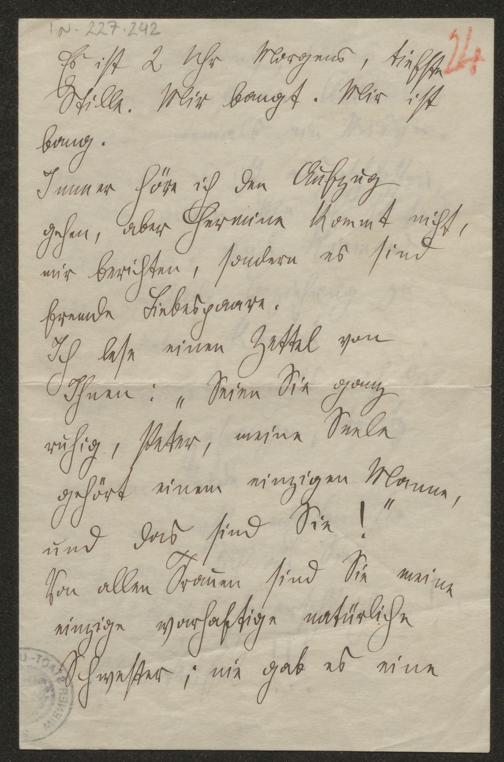 IN-227.242
24
Es ist 2 Uhr Morgens, tiefste
Stille. Mir bangt. Mir ist
bang.
Immer höre ich den Aufzug
gehen, aber Hermine kommt nicht,
mir berichten, sondern es sind
fremde Liebespaare.
Ich lese einen Zettel von
Ihnen: „Seien Sie ganz
ruhig, Peter, meine Seele
gehört einem einzigen Manne,
und das sind Sie!"
Von allen Frauen sind Sie meine
einzige warhaftige natürliche
Schwester; nie gab es eine